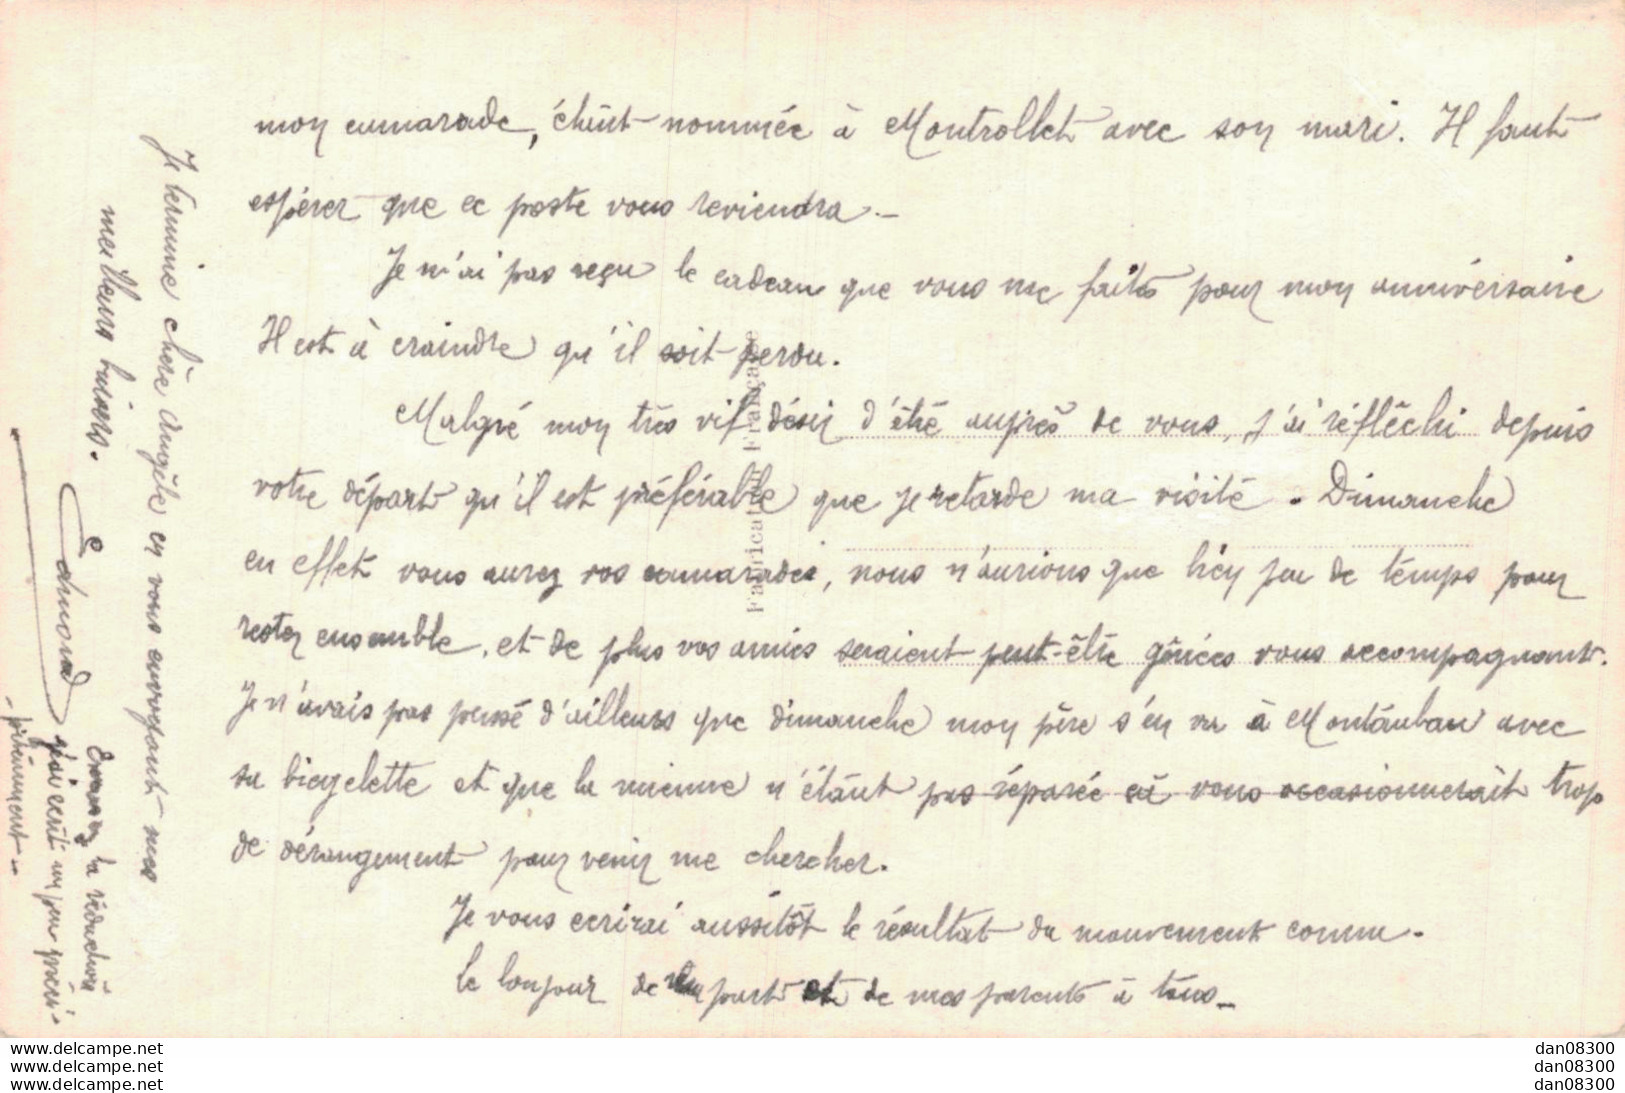 mon camarade, étant nommée à Montrollet avec son mari. Il faut
espérer que ce poste vous reviendra.—
Je n'ai pas reçu le cadeau que vous me faites pour mon anniversaire
Il est à craindre qu'il soit perdu.
Malgré mon très vif désir d'être auprès de vous, j'ai réfléchi depuis
votre départ qu'il est préférable que je retarde ma visite. Dimanche
en effet vous aurez vos camarades, nous n'aurions que bien peu de temps pour
rester ensemble, et de plus vos amies seraient peut-être gênées vous accompagnant.
Je n'avais pas pensé d'ailleurs que dimanche mon père s'en va à Montauban avec
sa bicyclette et que la mienne n'étant pas réparée ça vous occasionnerait trop
de dérangement pour venir me chercher.
Je vous écrirai aussitôt le résultat du mouvement connu.
Le bonjour de ma part et de mes parents à tous—
Je termine chère Angèle en vous envoyant mes
meilleurs baisers.
Edmond
Excusez la rédaction
j'ai écrit un peu préci-
-pitamment-
Fabrication Française
delcampe.net
delcampe.net
delcampe.net
dan08300
dan08300
dan08300